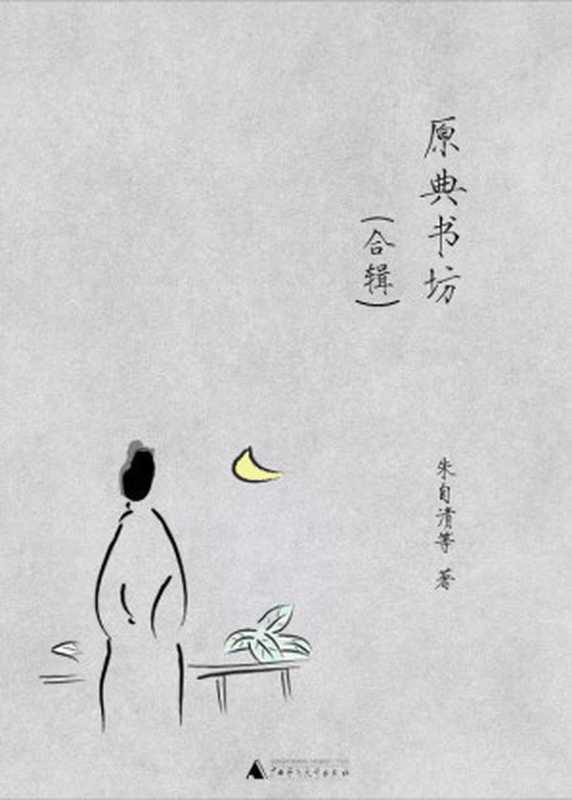 原典书坊
（合辑）
朱自清等 著
广西师范大学出版社